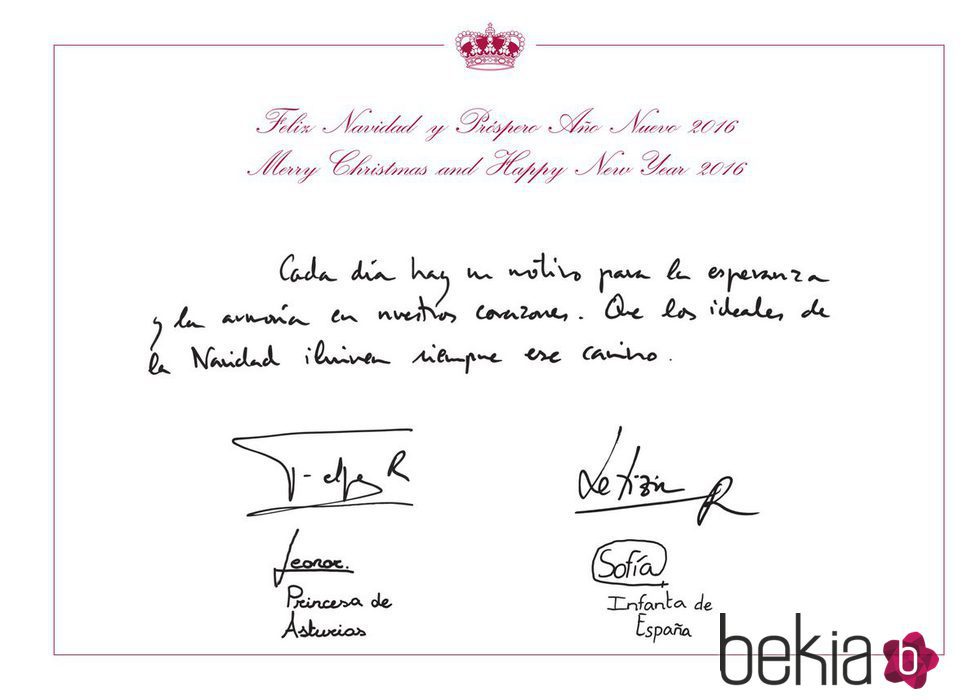 Feliz Navidad y Próspero Año Nuevo 2016
Merry Christmas and Happy New Year 2016
Cada día hay un motivo para la esperanza
y la armonía en nuestros corazones. Que los ideales de
la Navidad iluminen siempre ese camino.
Felipe R
Letizia R
Leonor.
Princesa de
Asturias
Sofía
Infanta de
España
bekia b